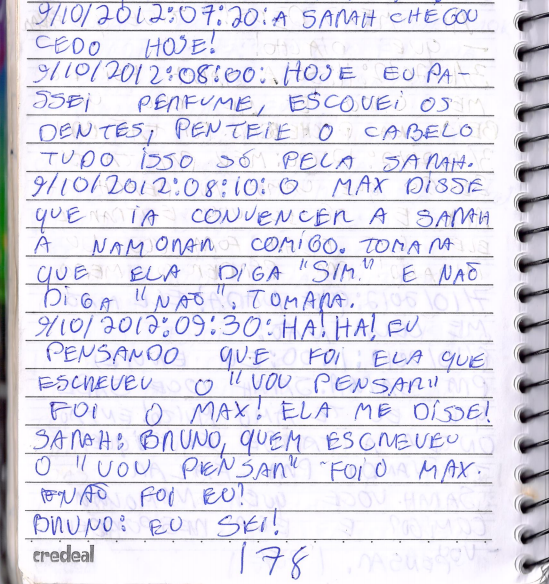 9/10/2012:07:20:A SARAH CHEGOU
CEDO HOJE!
9/10/2012:08:00: HOJE EU PA-
SSEI PERFUME, ESCOVEI OS
DENTES, PENTEIE O CABELO
TUDO ISSO SÓ PELA SARAH.
9/10/2012:08:10: O MAX DISSE
QUE IA CONVENCER A SARAH
A NAMORAR COMIGO. TOMARA
QUE ELA DIGA "SIM." E NÃO
DIGA "NÃO". TOMARA.
9/10/2012:09:30:HA! HA! EU
PENSANDO QUE FOI ELA QUE
ESCREVEU O "VOU PENSAR"
FOI O MAX! ELA ME DISSE!
SARAH: BRUNO, QUEM ESCREVEU
O "VOU PENSAR" FOI O MAX.
NÃO FOI EU!
BRUNO: EU SEI!
credeal
178